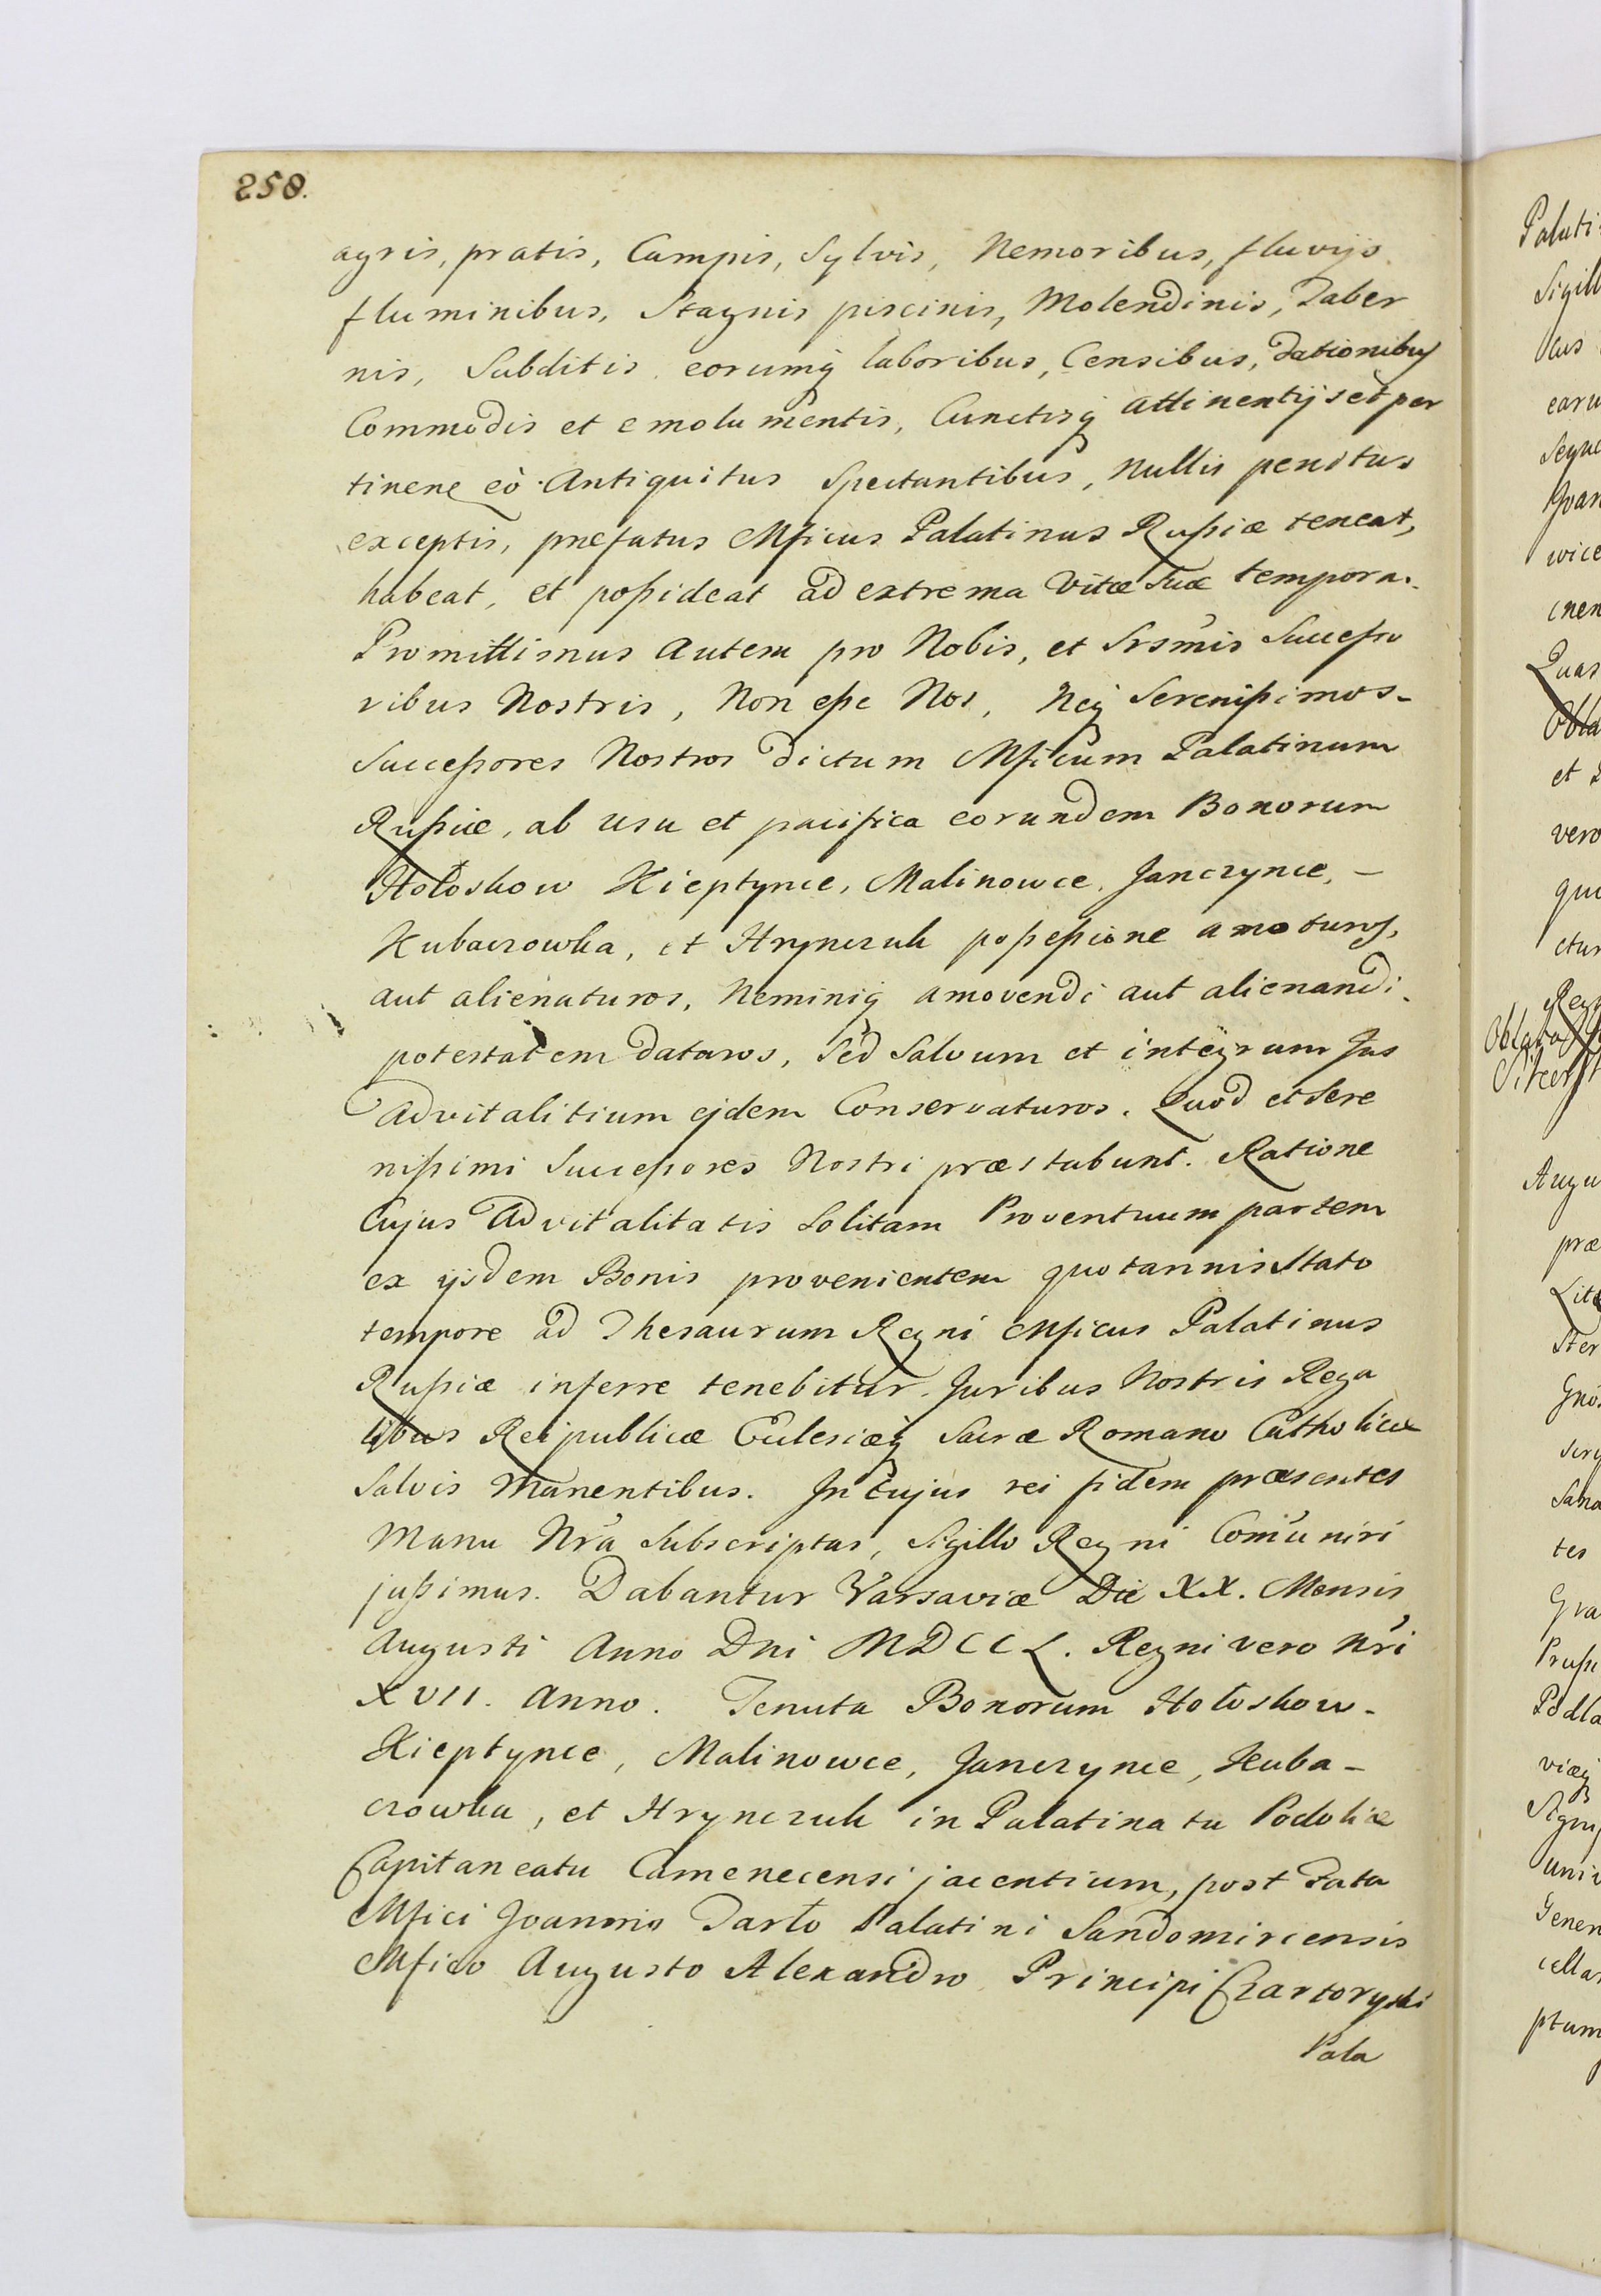 258.
agris, pratis, Campis, Sylvis, Nemoribus, fluvijs
fluminibus, Stagnis piscinis, Molendinis, Taber
nis, Subditis eorumq laboribus, Censibus, dationibus
Commodis et emolumentis, Cunctisq attinentijs et per
tinene eò Antiquitus Spectantibus, nullis penitus
exceptis, prefatus Mficus Palatinus Rußiæ teneat,
habeat, et poßideat ad extrema vitæ suæ tempora.
Promittimus autem pro Nobis, et Srsmis Succeßo
ribus Nostris, Non eße Nos, Neq Serenißimos-
Succeßores Nostros dictum Mficum Palatinum
Rußiæ, ab usu et pacifica eorundem Bonorum
Hołoskow Kieptynce, Malinowce, Janczynce, -
Kubaczowka, et Hrynczuk poßeßione amoturos,
aut alienaturos, Neminiq amovendi aut alienandi
potestatem daturos, Sed Salvum et integrum Jus
Advitalitium ejdem Conservaturos. Quod et Sere
nißimi Succeßores Nostri præstabunt. Ratione
Cujus Advitalitatis Solitam Proventuum partem
ex ijsdem Bonis provenientem quotannis Stato
tempore ad Thesaurum Regni Mficus Palatinus
Rußiæ inferre tenebitur. Juribus Nostris Rega
libus Reipublicæ Eclesiæq Sacræ Romano Catholicæ
Salvis Manentibus. In Cujus rei fidem præsentes
Manu Nrã Subscriptas, Sigillo Regni Comũniri
jußimus. Dabantur Varsaviæ Die XX. Mensis
Augusti Anno Dni MDCCL. Regni vero Nri
XVII. Anno. Tenuta Bonorum Hołoskow-
Kieptynce, Malinowce, Janczynce, Kuba-
czowka, et Hrynczuk in Palatinatu Podoliæ
Capitaneatu Camenecensi jacentium, post Fata
Mfici Joannis Tarło Palatini Sandomiriensis
Mfico Augusto Alexandro Principi Czartoryski
Pala
Palati
Sigill
earu
wice
Quas
et
vero
Augu
præ
Lite
tes
Gra
Pruß
Podla
viæq
Gener
cella
ptum